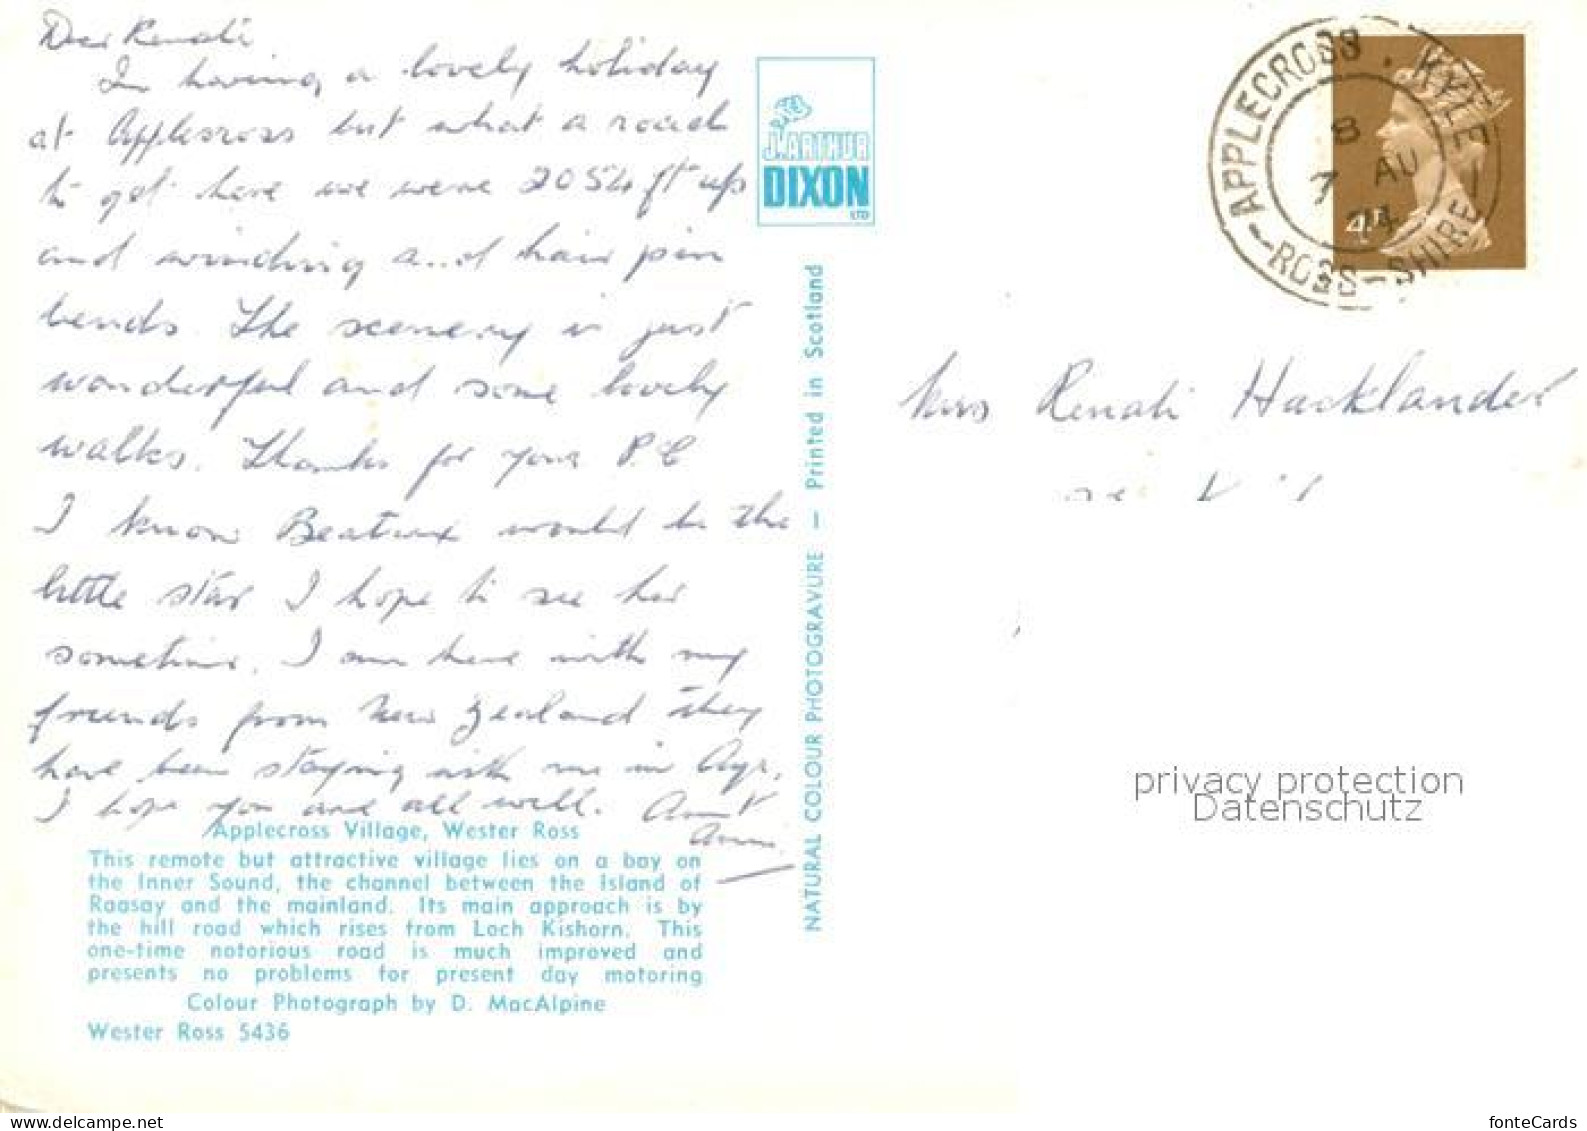 Dear Renate
Im having a lovely holiday
at Applecross but what a road
to get here we were 2054 ft up
and winding and hair pin
bends. The scenery is just
wonderful and some lovely
walks. Thanks for your P.C
I know Beatrix would be the
little star I hope to see her
sometime. I am here with my
friends from New Zealand they
have been staying with me in Ayr,
I hope you are all well. Aunt
Applecross Village, Wester Ross
This remote but attractive village lies on a bay on
the Inner Sound, the channel between the Island of
Raasay and the mainland. Its main approach is by
the hill road which rises from Loch Kishorn. This
one-time notorious road is much improved and
presents no problems for present day motoring
Colour Photograph by D. MacAlpine
Wester Ross 5436
J. ARTHUR
DIXON
LTD
NATURAL COLOUR PHOTOGRAVURE — Printed in Scotland
APPLECROSS . KYLE
ROSS-SHIRE
8
7 AU
4P
Renate Hacklander
privacy protection
Datenschutz
fonteCards